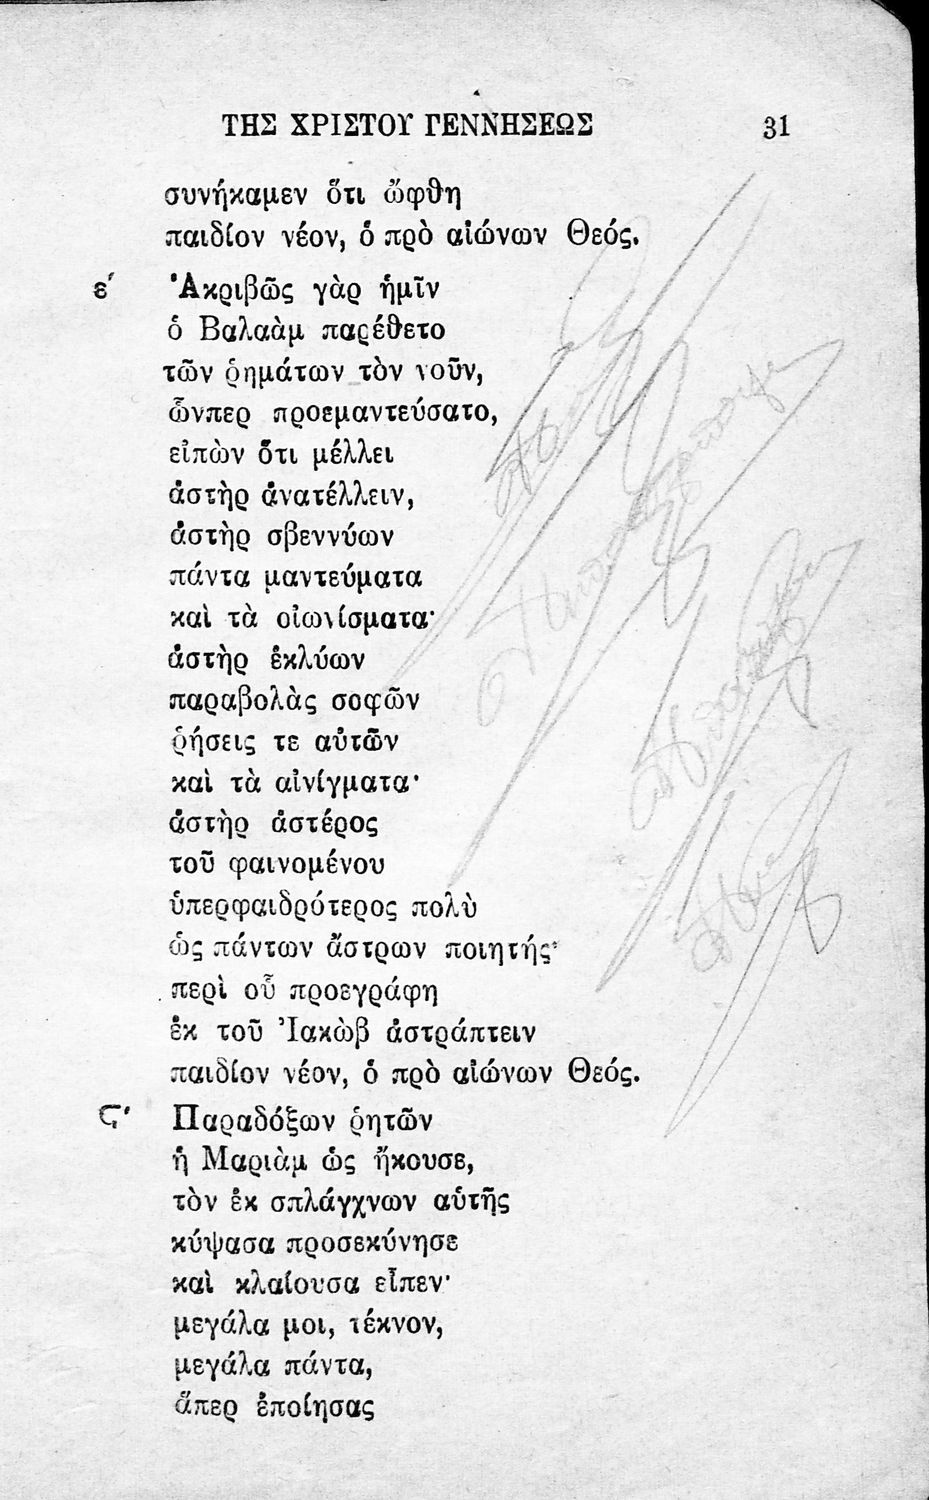 ΤΗΣ ΧΡΙΣΤΟΥ ΓΕΝΝΗΣΕΩΣ 31
συνήκαμεν ὅτι ὤφθη
παιδίον νέον, ὁ πρὸ αἰώνων Θεός.
ε΄ Ἀκριβῶς γὰρ ἡμῖν
ὁ Βαλαὰμ παρέθετο
τῶν ῥημάτων τὸν νοῦν,
ὧνπερ προεμαντεύσατο,
εἰπὼν ὅτι μέλλει
ἀστὴρ ἀνατέλλειν,
ἀστὴρ σβεννύων
πάντα μαντεύματα
καὶ τὰ οἰωνίσματα·
ἀστὴρ ἐκλύων
παραβολὰς σοφῶν
ῥήσεις τε αὐτῶν
καὶ τὰ αἰνίγματα·
ἀστὴρ ἀστέρος
τοῦ φαινομένου
ὑπερφαιδρότερος πολὺ
ὡς πάντων ἄστρων ποιητής·
περὶ οὗ προεγράφη
ἐκ τοῦ Ἰακὼβ ἀστράπτειν
παιδίον νέον, ὁ πρὸ αἰώνων Θεός.
Ϛ΄ Παραδόξων ῥητῶν
ἡ Μαριὰμ ὡς ἤκουσε,
τὸν ἐκ σπλάγχνων αὐτῆς
κύψασα προσεκύνησε
καὶ κλαίουσα εἶπεν·
μεγάλα μοι, τέκνον,
μεγάλα πάντα,
ἅπερ ἐποίησας